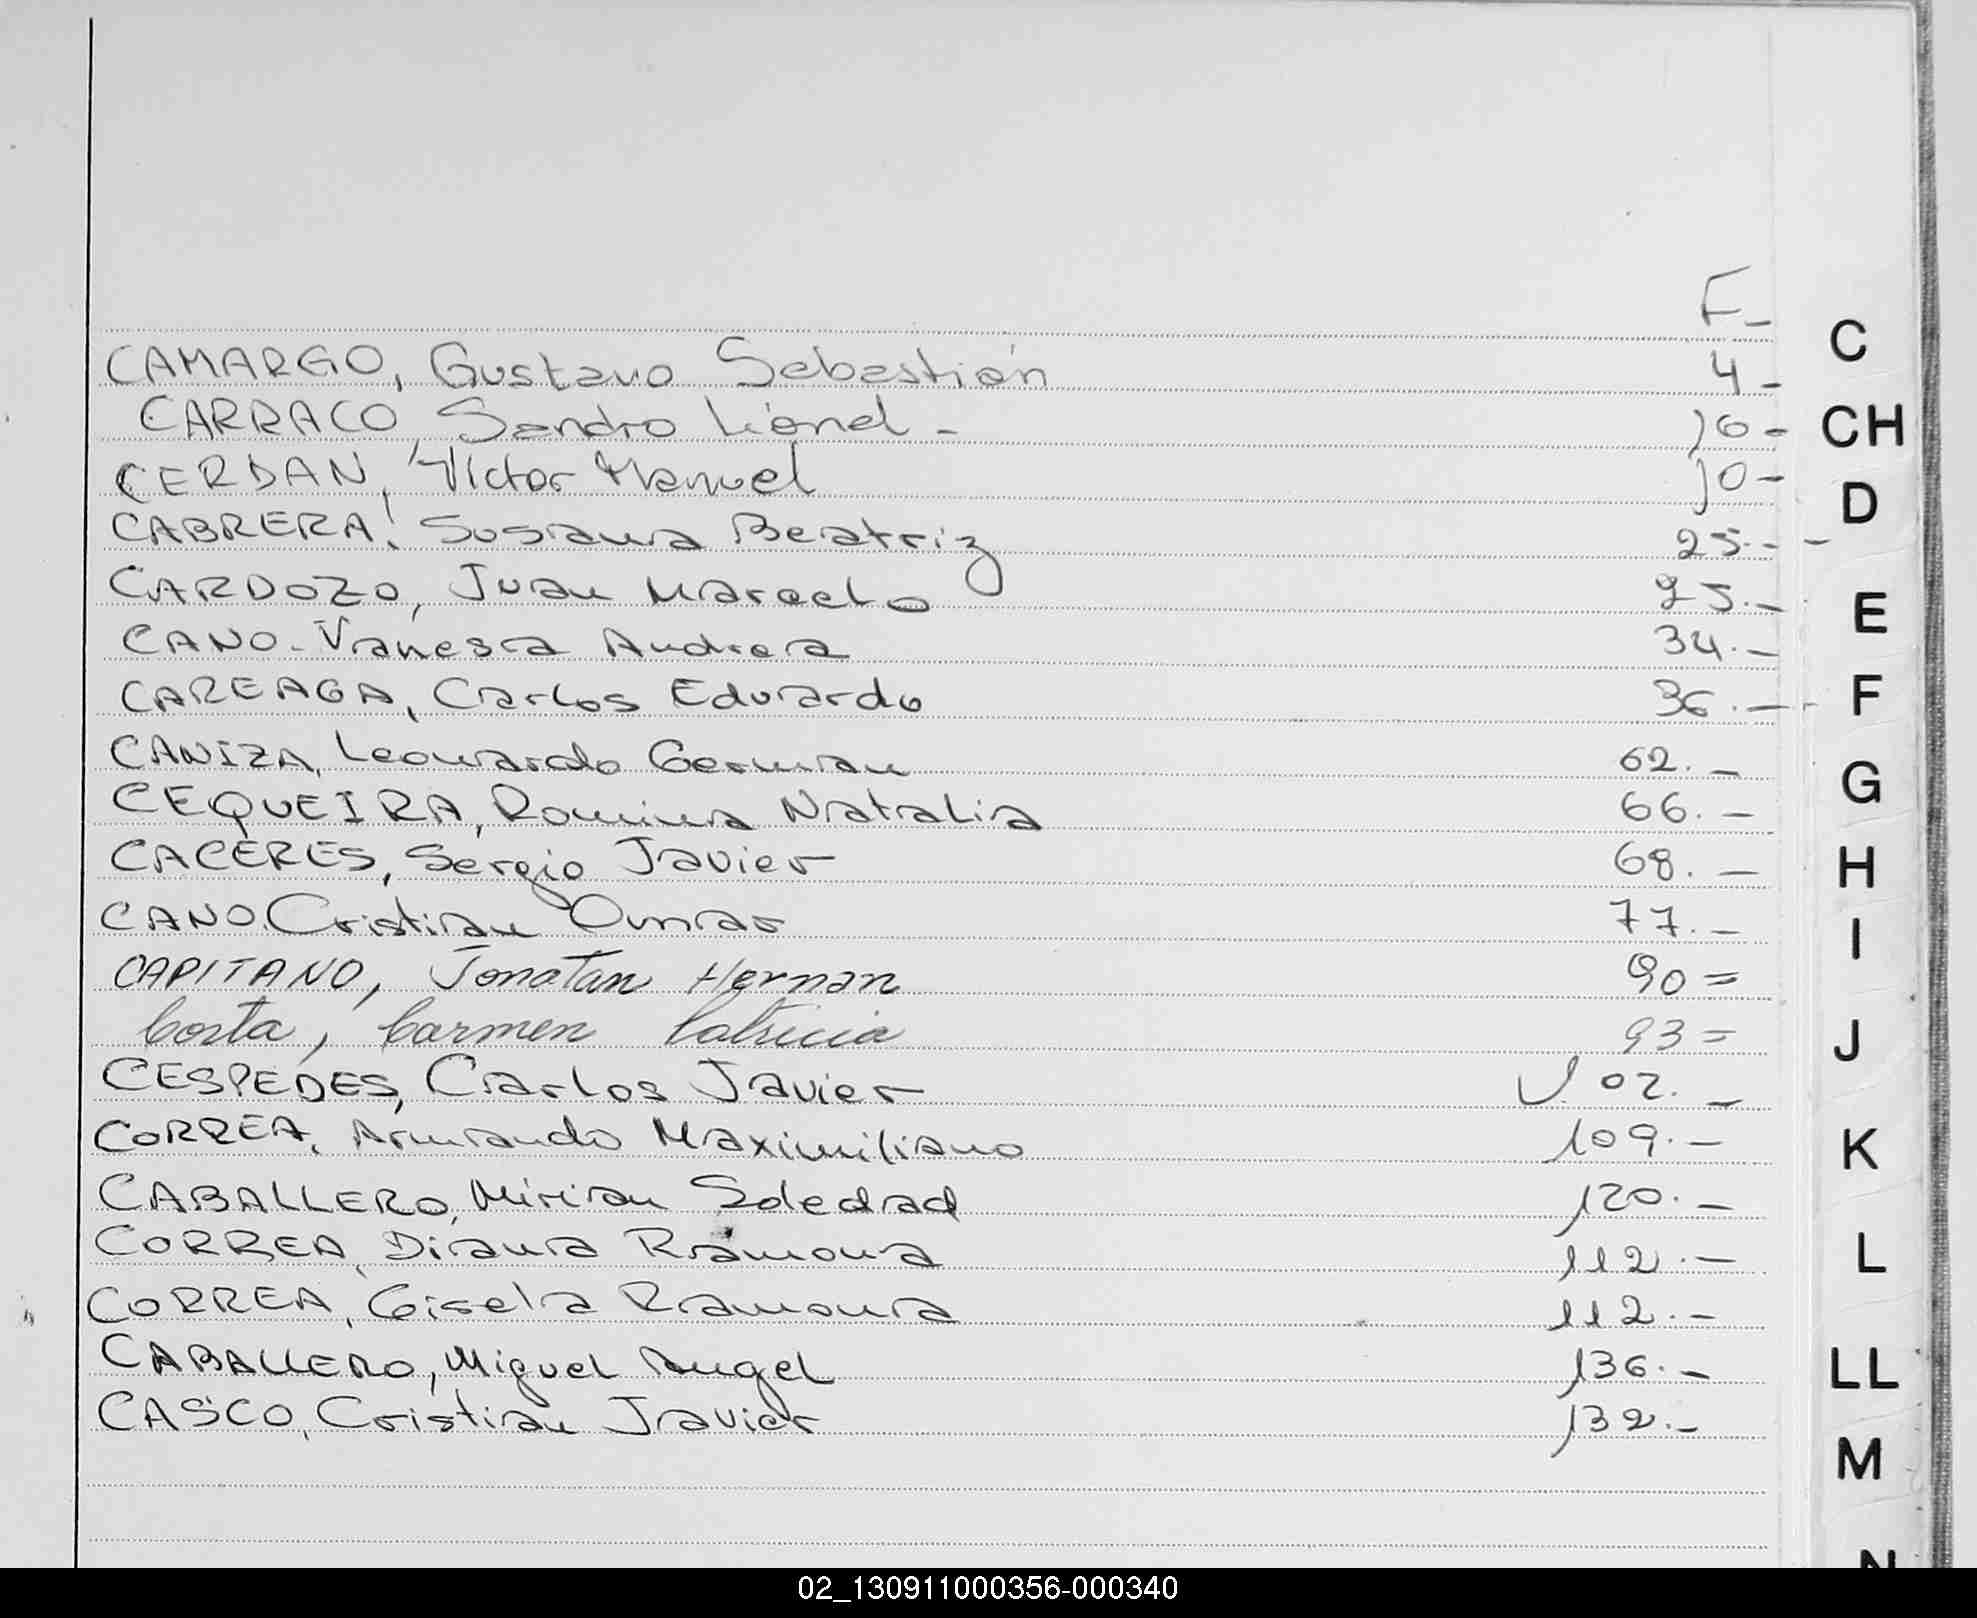 F-
CAMARGO, Gustavo Sebastián 4-
CARRACO, Sandro Lionel - 10-
CERDAN, Victor Manuel 10-
CABRERA, Susana Beatriz 25.-
CARDOZO, Juan Marcelo 25.-
CANO. Vanesa Andrea 34.-
CAREAGA, Carlos Eduardo 36.-
CANIZA, Leonardo German 62.-
CEQUEIRA, Romina Natalia 66.-
CACERES, Sergio Javier 68.-
CANO. Cristian Omar 77.-
CAPITANO, Jonatan Hernan 90=
Costa, Carmen Patricia 93=
CESPEDES, Carlos Javier 102.-
CORREA, Armando Maximiliano 109.-
CABALLERO, Mirian Soledad 120.-
CORREA, Diana Ramona 112.-
CORREA, Gisela Ramona 112.-
CABALLERO, Miguel Angel 136.-
CASCO, Cristian Javier 132.-
C
CH
D
E
F
G
H
I
J
K
L
LL
M
N
02_130911000356-000340